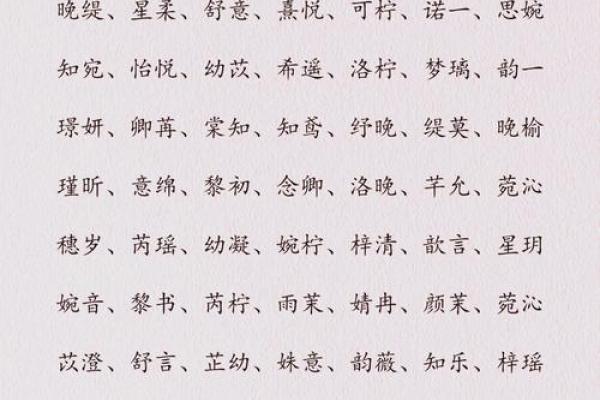 晚缇、星柔、舒意、熹悦、可柠、诺一、思婉
知宛、怡悦、幼苡、希遥、洛柠、梦璃、韵一
璟妍、卿苒、棠知、知鸢、纾晚、缇莫、晚榆
瑾昕、意绵、黎初、念卿、洛晚、芊允、菀沁
穗岁、芮瑶、幼凝、婉柠、梓清、歆言、星玥
婉音、黎书、芮柠、雨茉、婧冉、颜茉、菀沁
苡澄、舒言、芷幼、姝意、韵薇、知乐、梓瑶